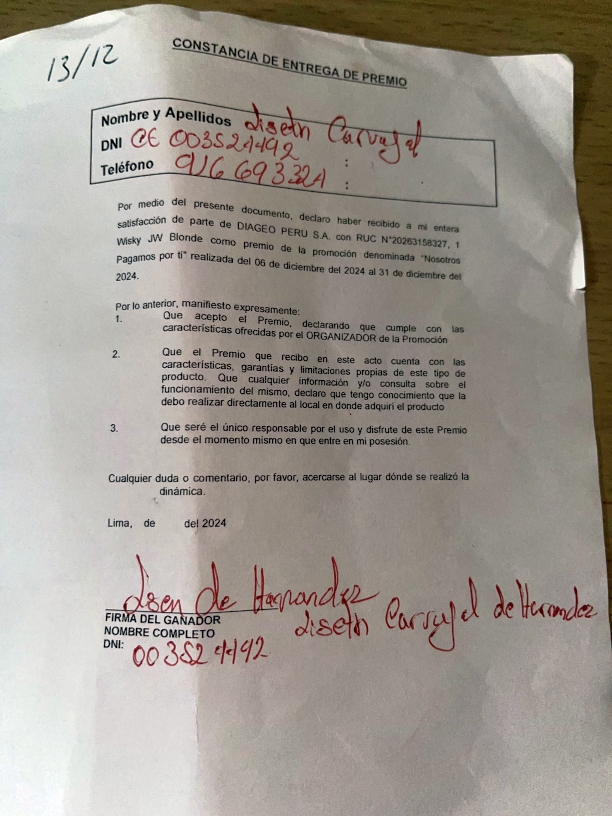 13/12
CONSTANCIA DE ENTREGA DE PREMIO
Nombre y Apellidos Diseth Carvajal
DNI CE 003524492 :
Teléfono 916693324 :
Por medio del presente documento, declaro haber recibido a mi entera
satisfacción de parte de DIAGEO PERU S.A. con RUC N°20263158327, 1
Wisky JW Blonde como premio de la promoción denominada "Nosotros
Pagamos por ti" realizada del 06 de diciembre del 2024 al 31 de diciembre del
2024.
Por lo anterior, manifiesto expresamente:
1. Que acepto el Premio, declarando que cumple con las
características ofrecidas por el ORGANIZADOR de la Promoción
2. Que el Premio que recibo en este acto cuenta con las
características, garantías y limitaciones propias de este tipo de
producto. Que cualquier información y/o consulta sobre el
funcionamiento del mismo, declaro que tengo conocimiento que la
debo realizar directamente al local en donde adquirí el producto
3. Que seré el único responsable por el uso y disfrute de este Premio
desde el momento mismo en que entre en mi posesión.
Cualquier duda o comentario, por favor, acercarse al lugar dónde se realizó la
dinámica.
Lima, de del 2024
de Hernandez
FIRMA DEL GANADOR
NOMBRE COMPLETO Diseth Carvajal de Hernandez
DNI: 003524492